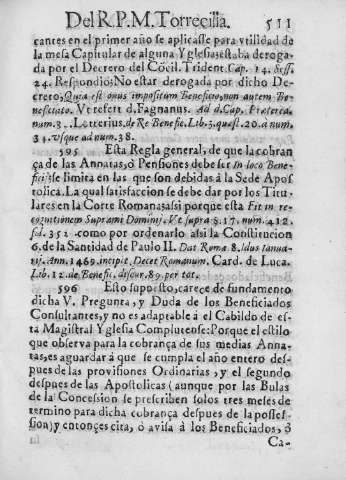 Del R. P. M. Torrecilla. 511
cantes en el primer año se aplicasse para vtilidad de
la mesa Capitular de alguna Yglesia: estaba deroga-
da por el Decreto del Cõcil. Trident. Cap. 14. Sess.
24. Respondiò: No estar derogada por dicho De-
creto, Quia est onus impositum Beneficio, non autem Be-
neficiato. Vt refert d. Fagnanus. Ad d. Cap. Præterea
num. 3. Lotterius, de Re Benefic. Lib. 3. quæst. 20. à num.
31. vsque ad num. 38.
595 Esta Regla general, de que la cobran
ça de las Annatas, ò Pensiones debe ser In loco Bene-
ficij: se limita en las que son debidas à la Sede Apos
tolica. La qual satisfaccion se debe dar por los Titu-
lares en la Corte Romana: assi porque esta Fit in re-
cognitionem Supremi Dominij. Vt supra §. 17. num. 412.
fol. 352 como por ordenarlo assi la Constitucion
6. de la Santidad de Paulo II. Dat Romæ 8. Idus Ianua-
rij. Ann. 1469. incipit, Decet Romanum. Card. de Luca.
Lib. 12. de Benefic. discur. 89. per tot.
596 Esto supuesto, carece de fundamento
dicha V. Pregunta, y Duda de los Beneficiados
Consultantes, y no es adapteable à el Cabildo de es-
ta Magistral Yglesia Complutense: Porque el estilo
que observa para la cobrança de sus medias Anna-
tas, es aguardar à que se cumpla el año entero des-
pues de las provisiones Ordinarias, y el segundo
despues de las Apostolicas (aunque por las Bulas
de la Concession se prescriben solos tres meses de
termino para dicha cobrança despues de la posses-
sion) y entonçes cita, ò avisa à los Beneficiados, ò
Ca-